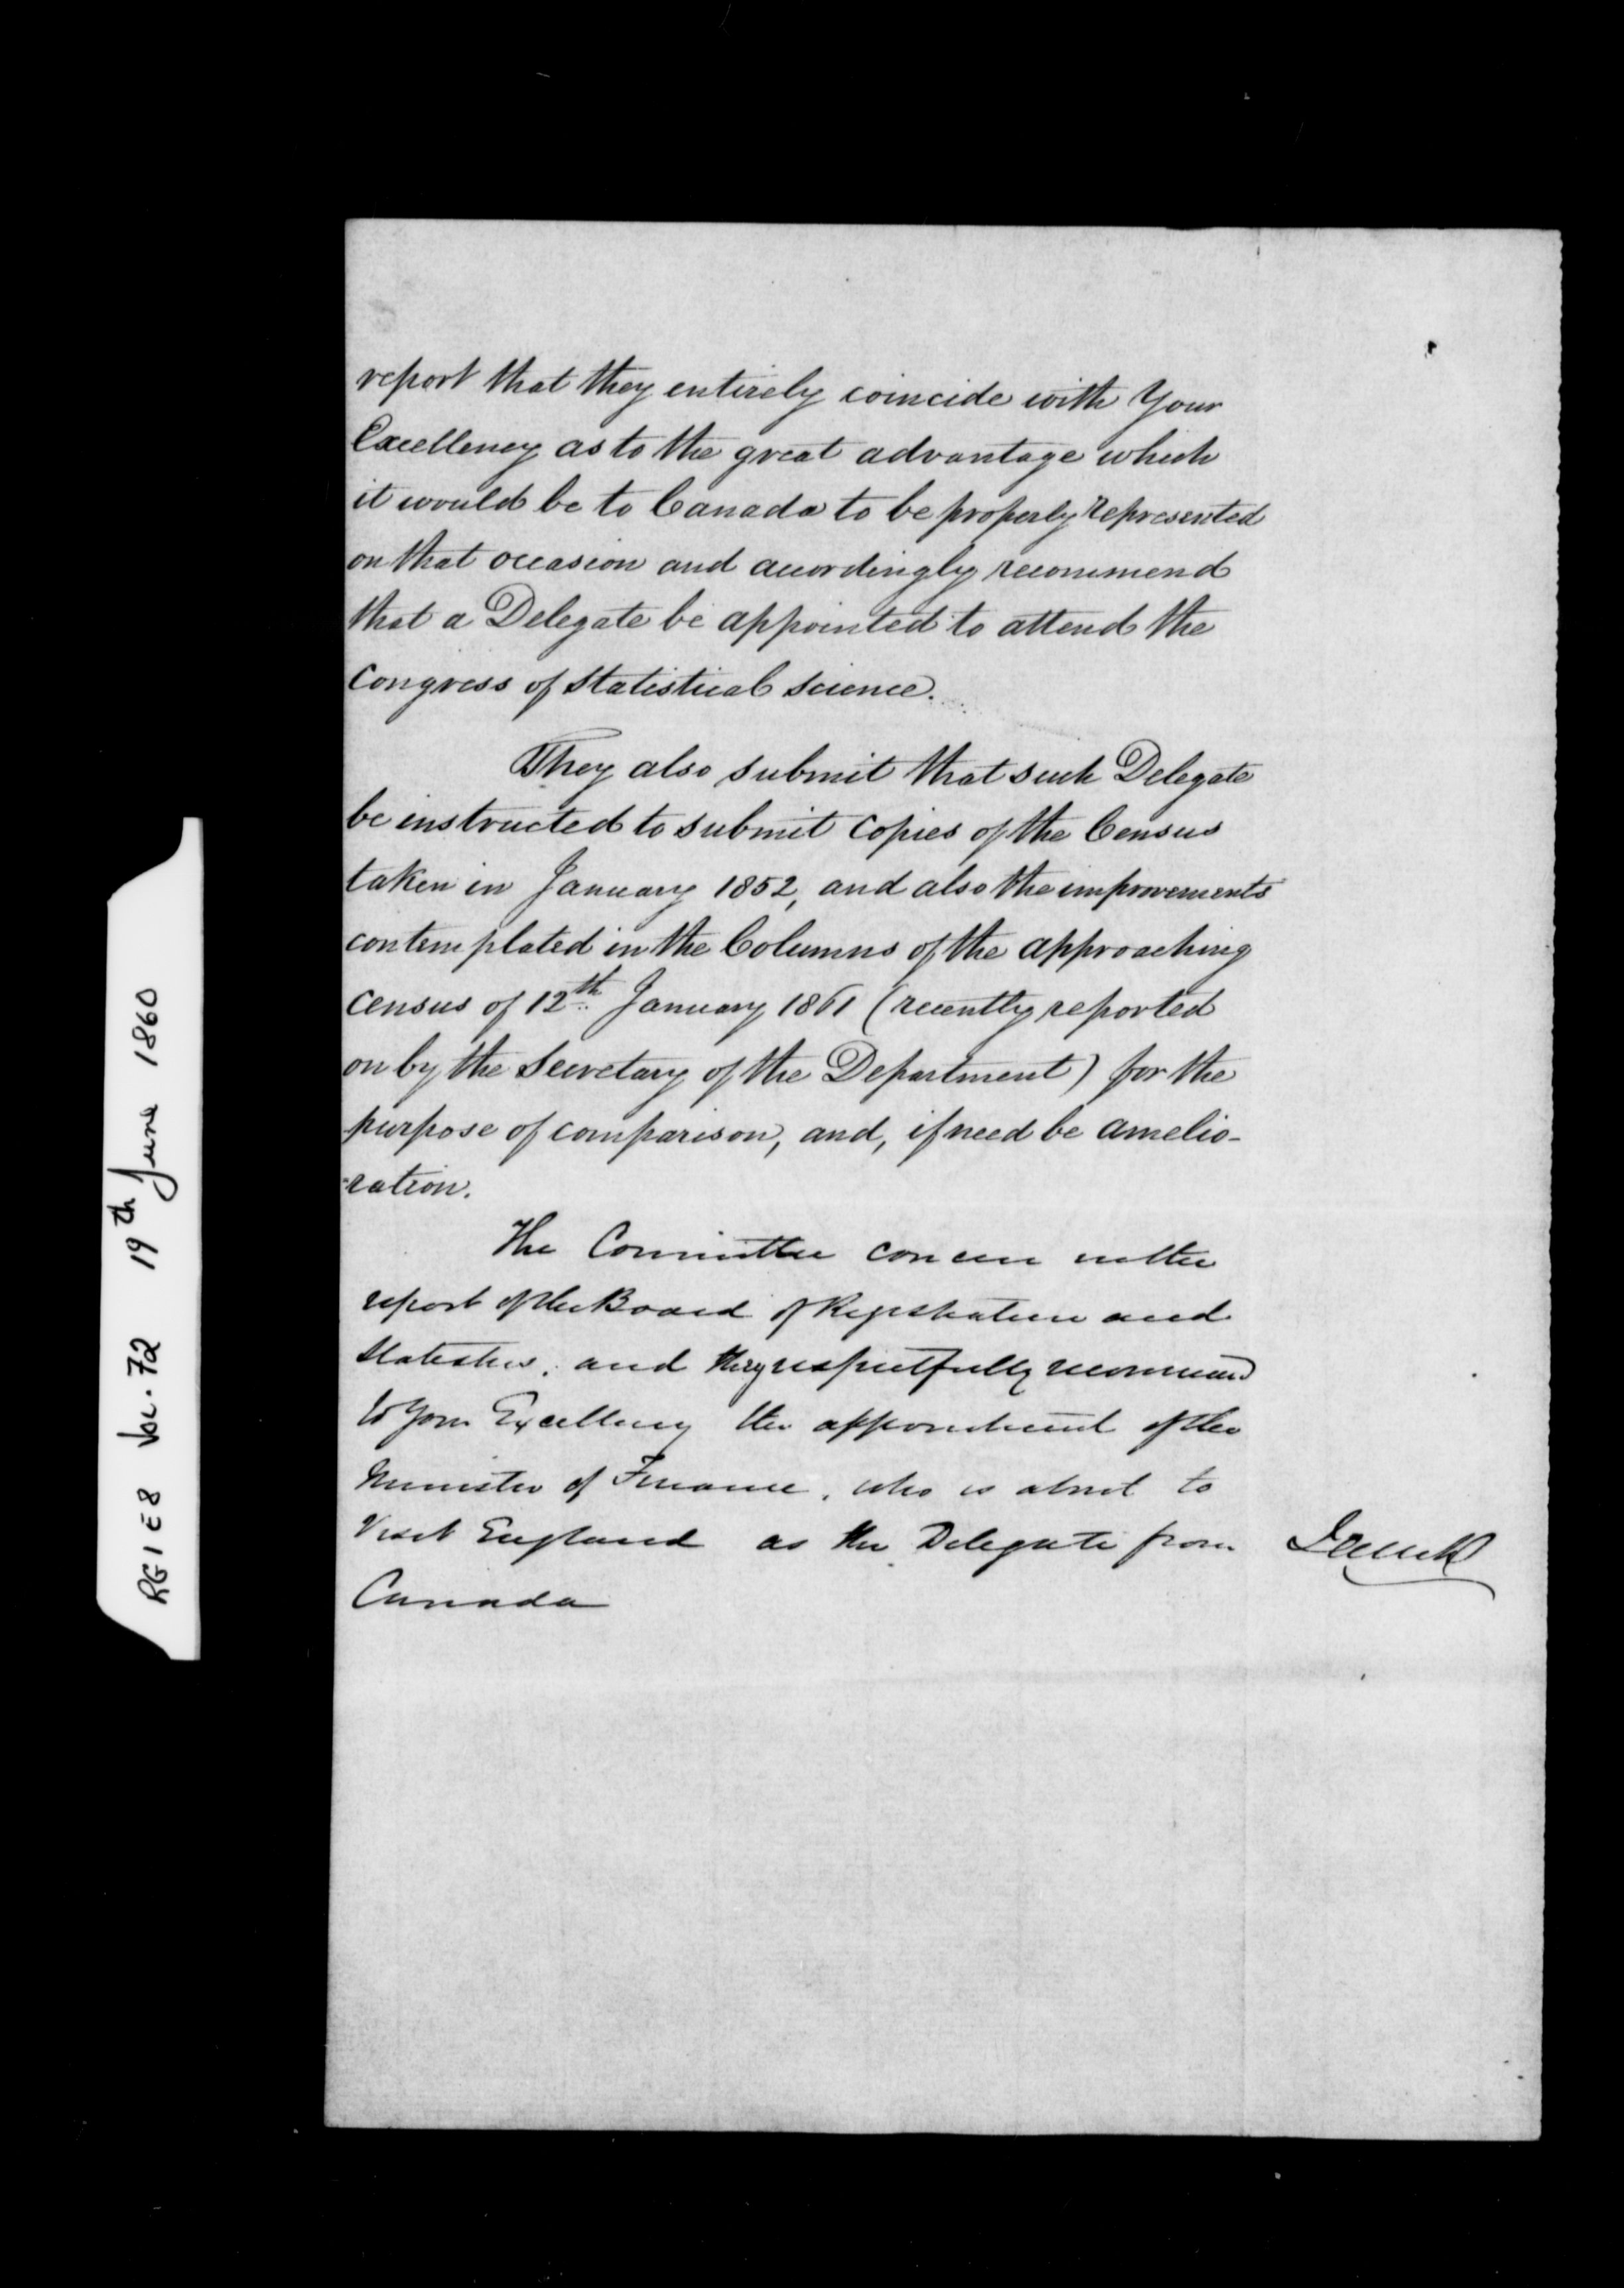 report that they entirely coincide with Your
Excellency as to the great advantage which
it would be to Canada to be properly represented
on that occasion and accordingly recommend
that a Delegate be appointed to attend the
Congress of Statistical Science.
They also submit that such Delegate
be instructed to submit copies of the Census
taken in January 1852, and also the improvements
contemplated in the Columns of the approaching
census of 12th January 1861 (recently reported
on by the Secretary of the Department) for the
purpose of comparison, and, if need be amelio-
ration.
The Committee concur in the
report of the Board of Registration and
Statistics, and they respectfully recommend
to Your Excellency the appointment of the
Minister of Finance, who is about to
Visit England as the Delegate from
Canada
RG1 E8 Vol. 72 19th June 1860